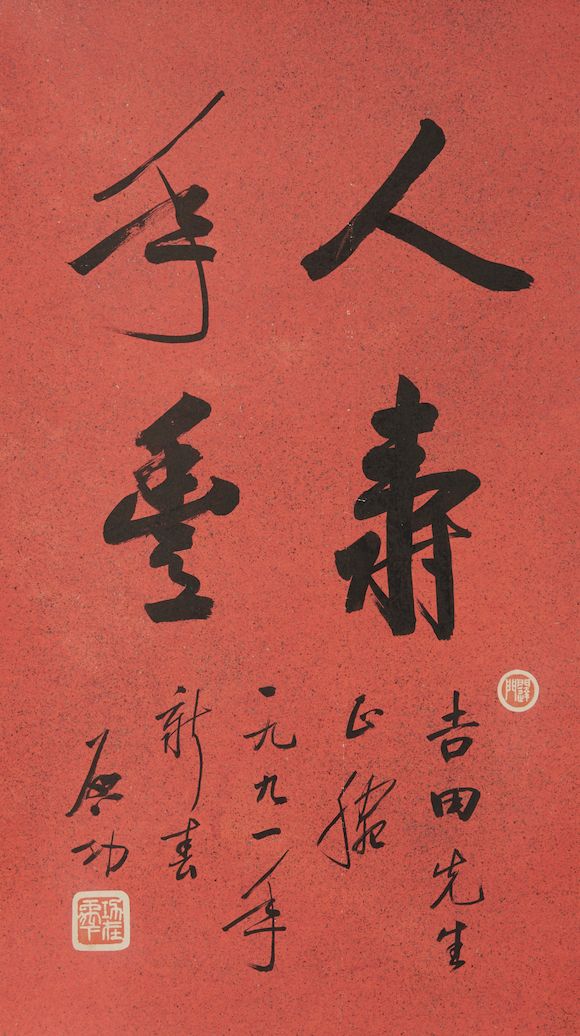 人壽
年豐
吉田先生
正
一九九一年
新春
启功